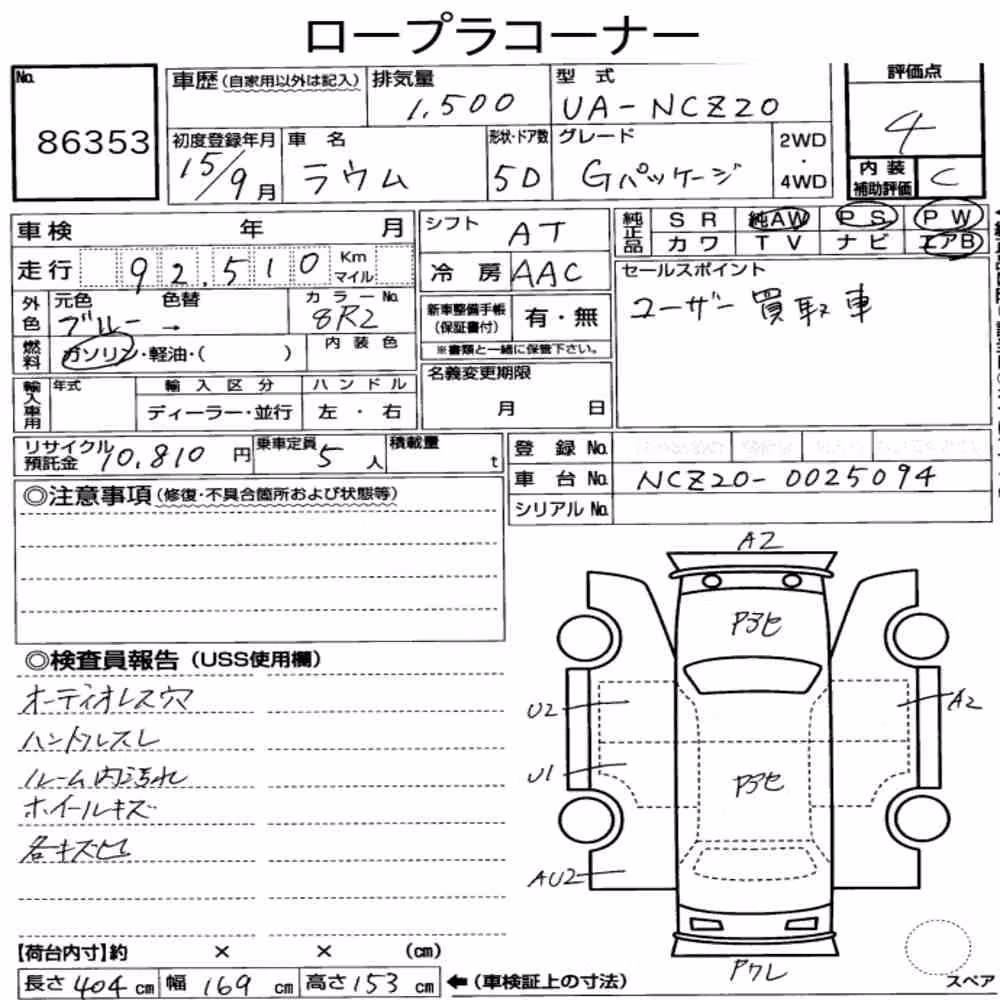 ロープラコーナー
No. 86353
車歴(自家用以外は記入) 排気量 1,500 型式 UA-NCZ20 評価点 4
初度登録年月 15/9月 車名 ラウム 形状・ドア数 5D グレード Gパッケージ 2WD・4WD 内装補助評価 C
車検 年 月 シフト AT 純正品 SR 純AW PS PW
カワ TV ナビ エアB
走行 92,510 Km マイル 冷房 AAC セールスポイント
ユーザー買取車
外色 元色 ブルー → 色替 カラーNo. 8R2 新車整備手帳(保証書付) 有・無
※書類と一緒に保管下さい。
燃料 ガソリン・軽油・( ) 内装色
名義変更期限 月 日
輸入車用 年式 輸入区分 ハンドル
ディーラー・並行 左・右
リサイクル預託金 10,810円 乗車定員 5人 積載量 t
登録No.
車台No. NCZ20-0025094
シリアルNo.
◎注意事項(修復・不具合箇所および状態等)
A2
P3ヒ
◎検査員報告(USS使用欄)
オーディオレスウマ
U2 A2
ハンドルスレ
ルーム内汚れ
U1 P3セ
ホイールキズ
各キズヒ
AU2
【荷台内寸】約 × × (cm)
長さ 404 cm 幅 169 cm 高さ 153 cm ←(車検証上の寸法)
P7レ
スペア